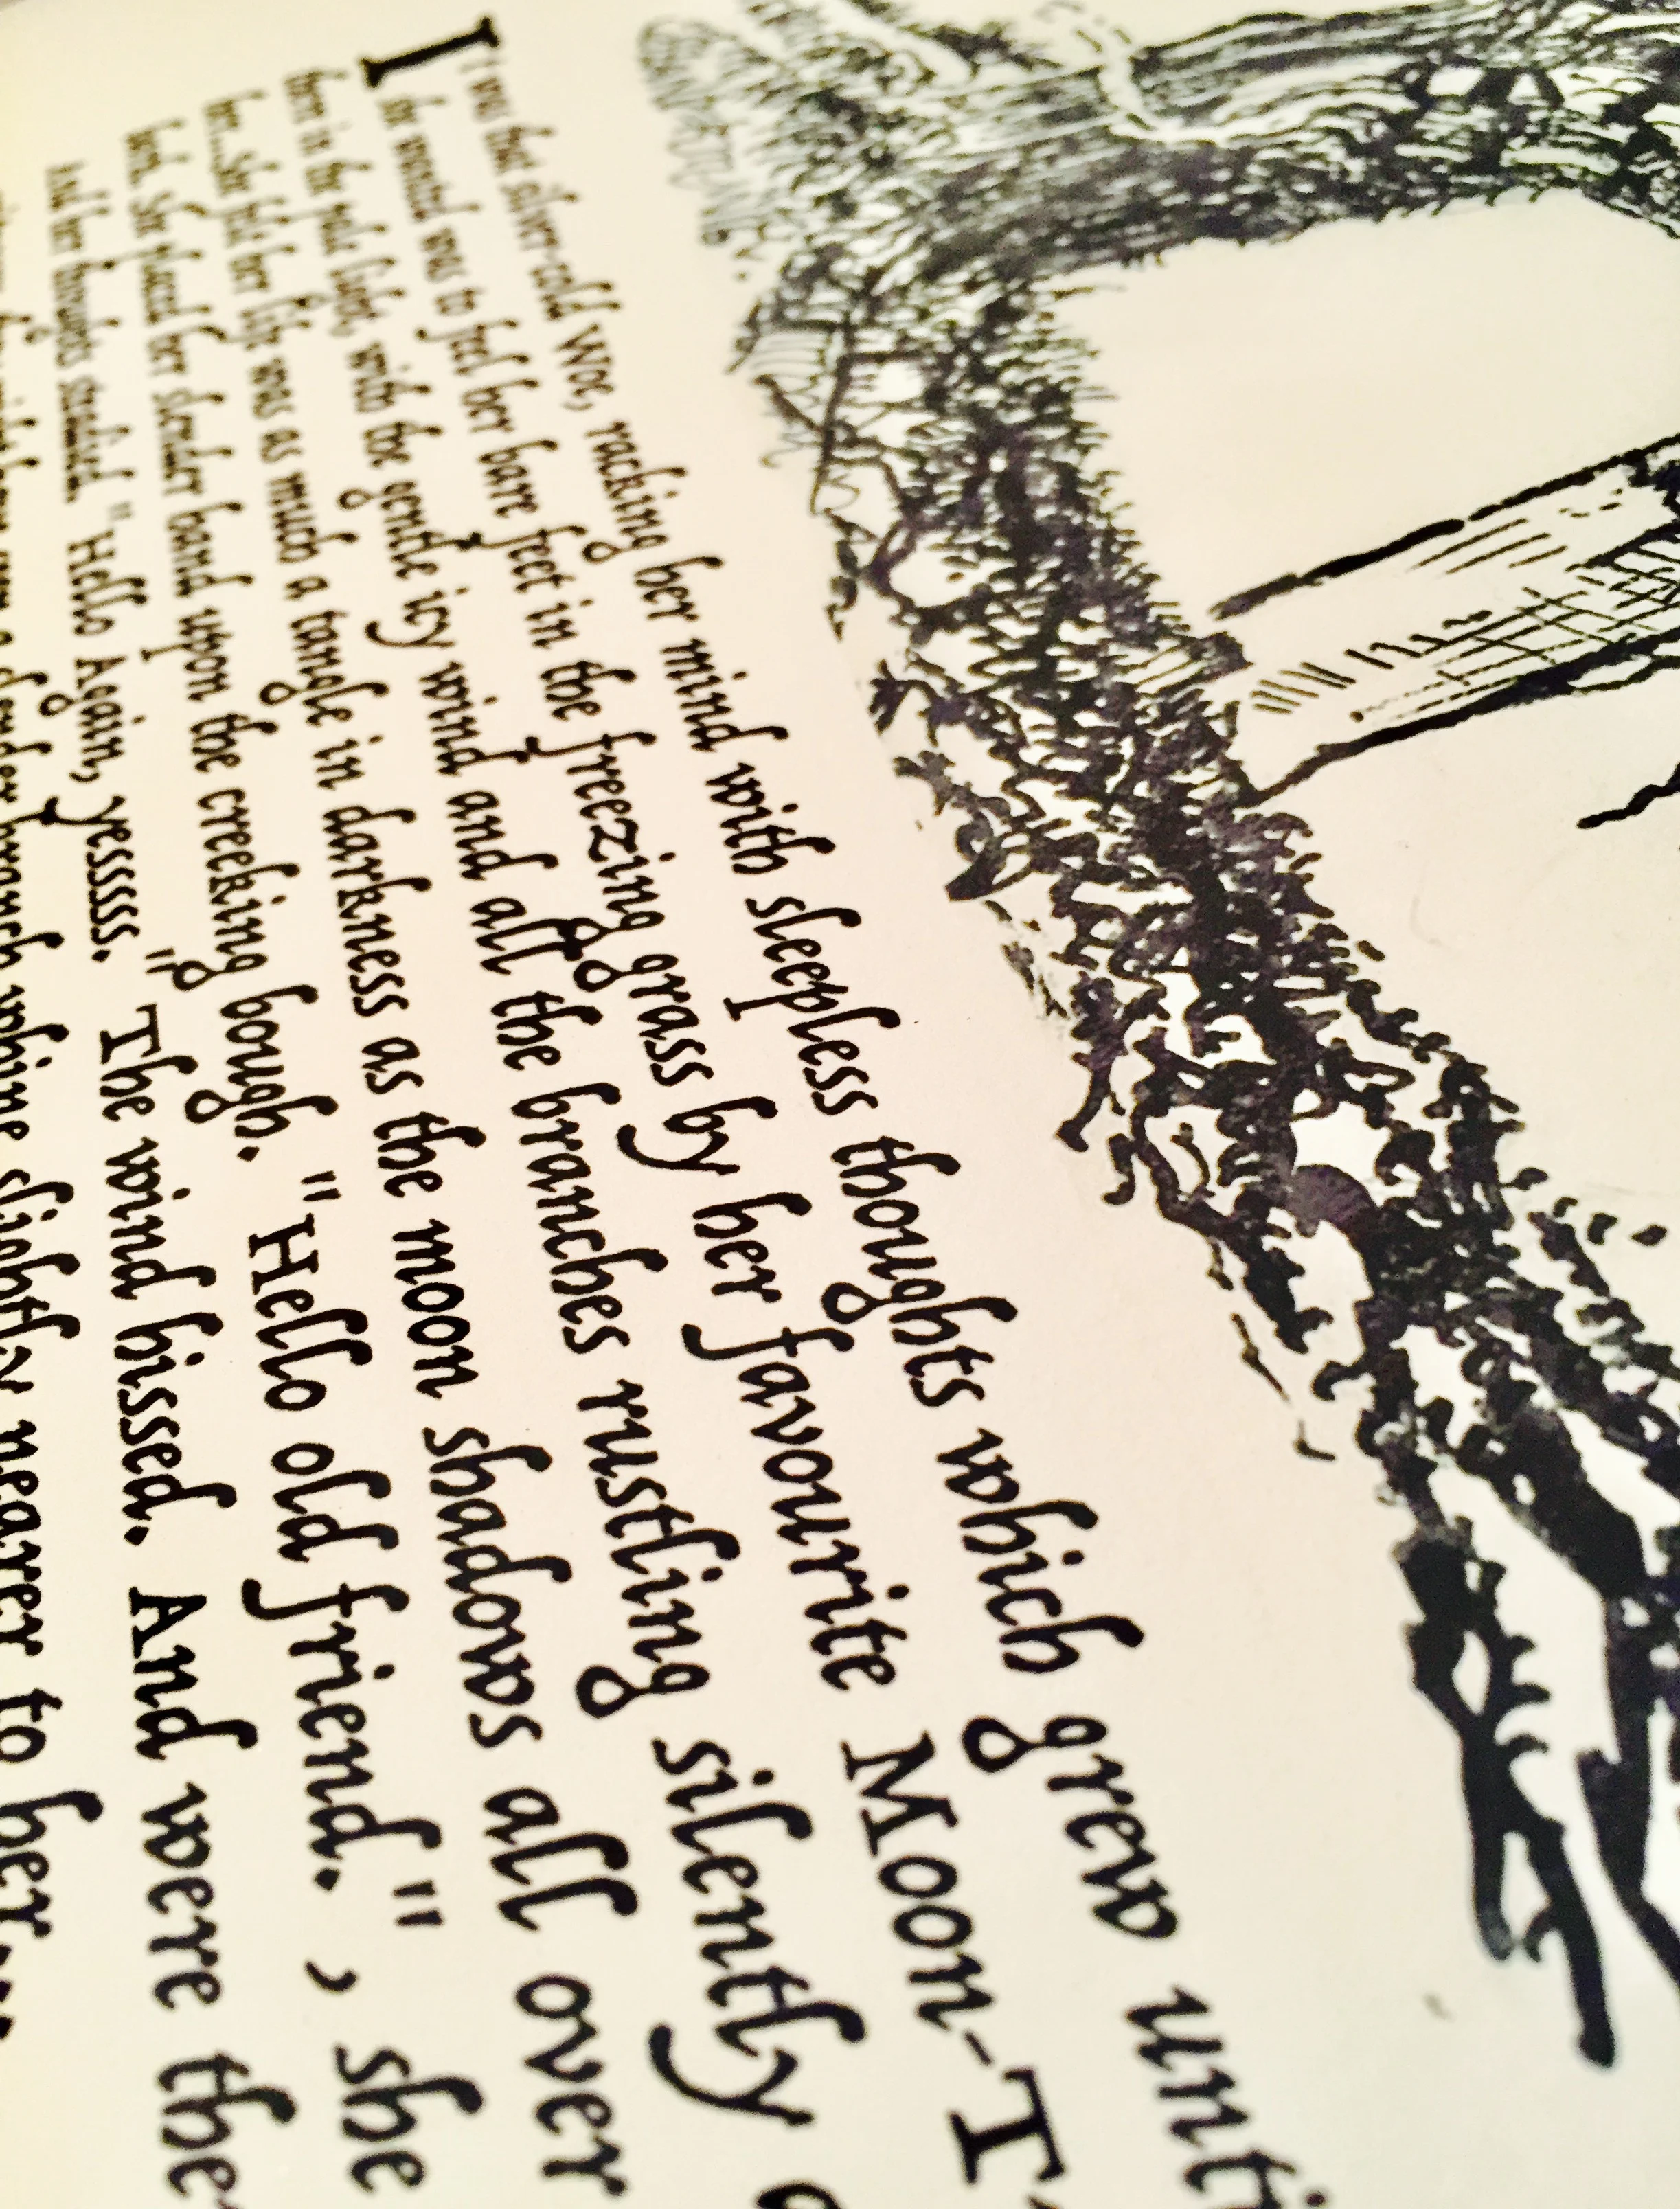 It was that silver-cold Woe, racking her mind with sleepless thoughts which grew unti
she wanted was to feel her bare feet in the freezing grass by her favourite Moon-T
here in the pale light, with the gentle icy wind and all the branches rustling silently a
her...She felt her life was as much a tangle in darkness as the moon shadows all over
She placed her slender hand upon the creeking bough. "Hello old friend.", she
And her thoughts steadied. "Hello Again, yesssss." The wind hissed. And were the
a slender branch whine slightly nearer to her...